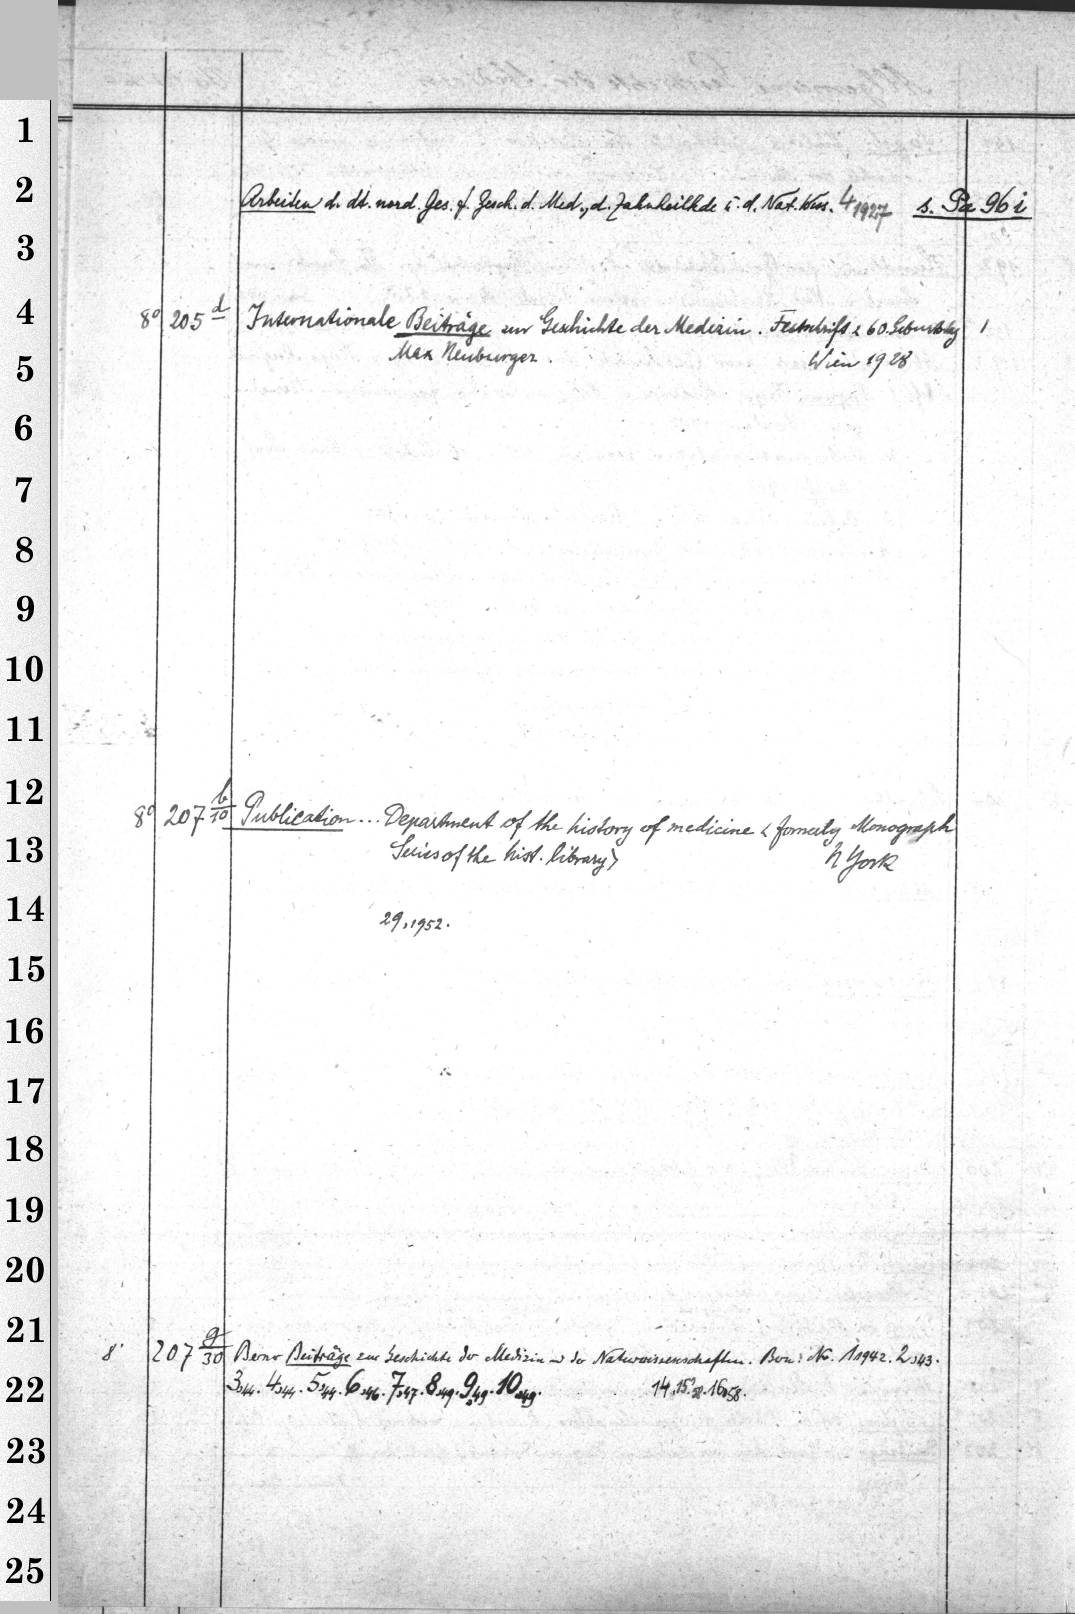 1
2
Arbeiten d. dt. nord. Ges. f. Gesch. d. Med., d. Zahnheilkde u. d. Nat. Wiss. 4, 1927 s. Pa 96 i
3
4
8° 205 d Internationale Beiträge zur Geschichte der Medizin. Festschrift z 60. Geburtstag 1
5
Max Neuburger. Wien 1928
6
7
8
9
10
11
12
8° 207 b/10 Publication... Department of the history of medicine < formerly Monograph
13
Series of the hist. library> N York
14
29, 1952.
15
16
17
18
19
20
21
8° 207 g/30 Berner Beiträge zur Geschichte der Medizin u der Naturwissenschaften. Bern: Nr. 1 1942. 2, 43.
22
3, 44. 4, 44. 5, 44. 6, 46. 7, 47. 8, 49. 9, 49. 10, 49. 14, 15, 58. 16, 58.
23
24
25